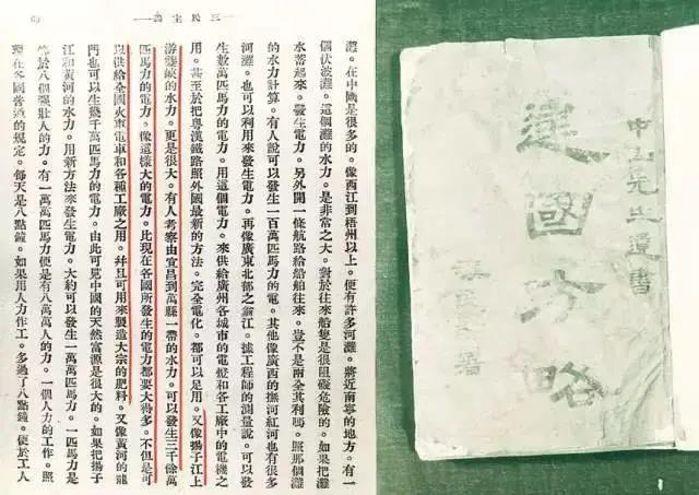 三民主義
灘。在中國是很多的。像西江到梧州以上。便有許多河灘。將近南寧的地方。有一
個伏波灘。這個灘的水力。是非常之大。對於往來船隻是很阻礙危險的。如果把灘
水蓄起來。發生電力。另外開一條航路給船舶往來。豈不是兩全其利嗎。照那個灘
的水力計算。有人說可以發生一百萬匹馬力的電。其他像廣西的撫河紅河也有很多
河灘。也可以利用來發生電力。再像廣東北部之翁江。據工程師的測量說。可以發
生數萬匹馬力的電力。用這個電力。來供給廣州各城市的電燈和各工廠中的電機之
用。甚至於把粵漢鐵路照外國最新的方法。完全電化。都可以足用。又像揚子江上
游夔峽的水力。更是很大。有人考察由宜昌到萬縣一帶的水力。可以發生三千餘萬
匹馬力的電力。像這樣大的電力。比現在各國所發生的電力都要大得多。不但是可
以供給全國火車電車和各種工廠之用。并且可用來製造大宗的肥料。又像黃河的龍
門也可以生幾千萬匹馬力的電力。由此可見中國的天然富源是很大的。如果把揚子
江和黃河的水力。用新方法來發生電力。大約可以發生一萬萬匹馬力。一匹馬力是
等於八個強壯人的力。有一萬萬匹馬力便是有八萬萬人的力。一個人力的工作。照
現在各國普通的規定。每天是八點鐘。如果用人力作工。多過了八點鐘。便於工人
中山先生遺書
建國方略
署